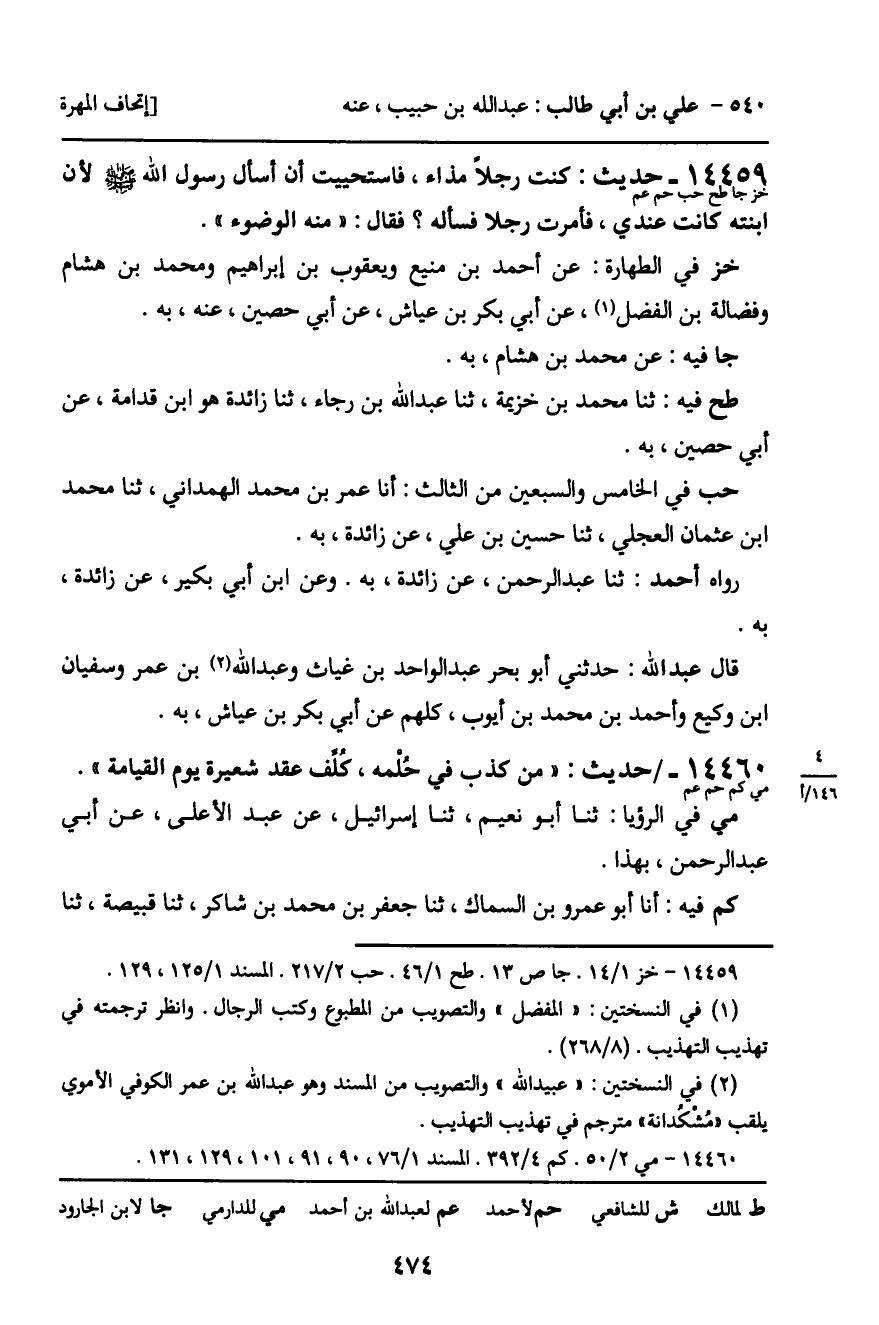 ٥٤٠ - علي بن أبي طالب : عبدالله بن حبيب ، عنه [إتحاف المهرة
١٤٤٥٩ - حديث : كنت رجلاً مذاء ، فاستحييت أن أسأل رسول الله ﷺ لأن
خز جا طح حب حم عم
ابنته كانت عندي ، فأمرت رجلا فسأله ؟ فقال : « منه الوضوء » .
خز في الطهارة : عن أحمد بن منيع ويعقوب بن إبراهيم ومحمد بن هشام
وفضالة بن الفضل(١) ، عن أبي بكر بن عياش ، عن أبي حصين ، عنه ، به .
جا فيه : عن محمد بن هشام ، به .
طح فيه : ثنا محمد بن خزيمة ، ثنا عبدالله بن رجاء ، ثنا زائدة هو ابن قدامة ، عن
أبي حصين ، به .
حب في الخامس والسبعين من الثالث : أنا عمر بن محمد الهمداني ، ثنا محمد
ابن عثمان العجلي ، ثنا حسين بن علي ، عن زائدة ، به .
رواه أحمد : ثنا عبدالرحمن ، عن زائدة ، به . وعن ابن أبي بكير ، عن زائدة ،
به .
قال عبدالله : حدثني أبو بحر عبدالواحد بن غياث وعبدالله(٢) بن عمر وسفيان
ابن وكيع وأحمد بن محمد بن أيوب ، كلهم عن أبي بكر بن عياش ، به .
١٤٤٦٠ - /حديث : « من كذب في حُلْمه ، كُلِّف عقد شعيرة يوم القيامة » .
مي كم حم عم
٤
١٤٦/أ
مي في الرؤيا : ثنا أبو نعيم ، ثنا إسرائيل ، عن عبد الأعلى ، عن أبي
عبدالرحمن ، بهذا .
كم فيه : أنا أبو عمرو بن السماك ، ثنا جعفر بن محمد بن شاكر ، ثنا قبيصة ، ثنا
١٤٤٥٩ - خز ١٤/١ . جا ص ١٣ . طح ٤٦/١ . حب ٢١٧/٢ . المسند ١٢٥/١ ، ١٢٩ .
(١) في النسختين : « المفضل » والتصويب من المطبوع وكتب الرجال . وانظر ترجمته في
تهذيب التهذيب . (٢٦٨/٨) .
(٢) في النسختين : « عبيدالله » والتصويب من المسند وهو عبدالله بن عمر الكوفي الأموي
يلقب «مُشْكُدانة» مترجم في تهذيب التهذيب .
١٤٤٦٠ - مي ٥٠/٢ . كم ٣٩٢/٤ . المسند ٧٦/١ ، ٩٠ ، ٩١ ، ١٠١ ، ١٢٩ ، ١٣١ .
ط لمالك ش للشافعي حم لأحمد عم لعبدالله بن أحمد مي للدارمي جا لابن الجارود
٤٧٤